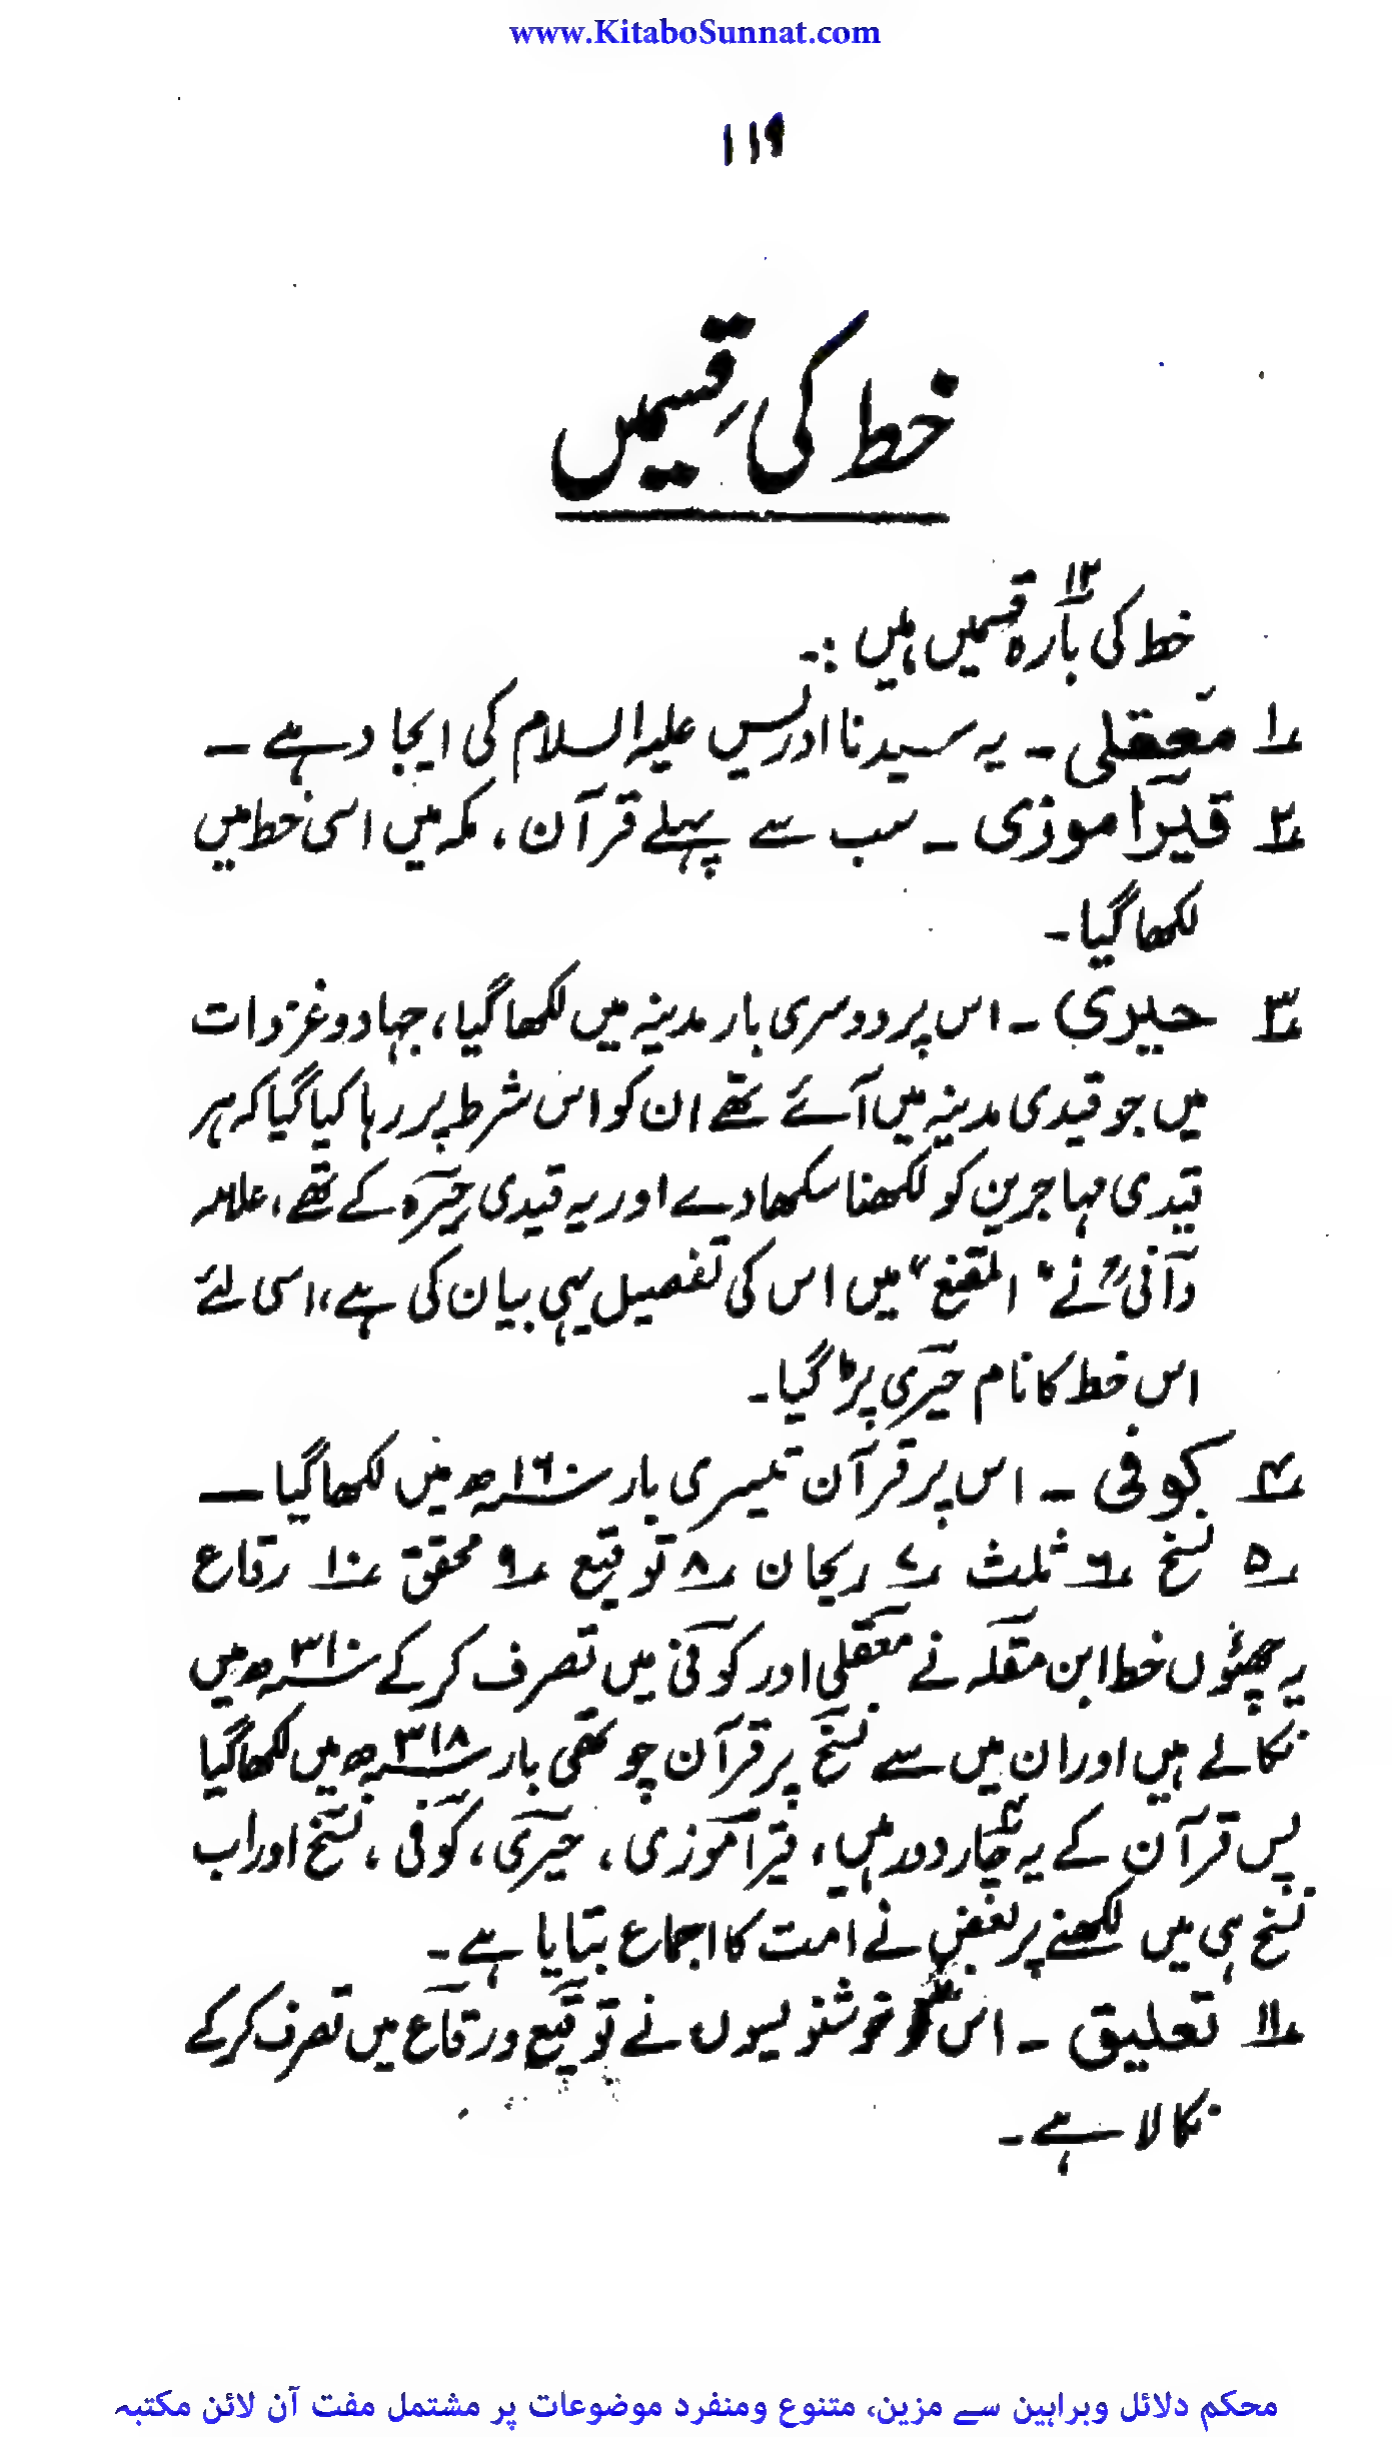 www.KitaboSunnat.com
۱۱۹
خط کی قسمیں
خط کی بارہ۱۲ قسمیں ہیں :۔
۱؍ معقلی ۔ یہ سیدنا ادریس علیہ السلام کی ایجاد ہے ۔
۲؍ قیرآموزی ۔ سب سے پہلے قرآن ، مکہ میں اسی خط میں
لکھا گیا ۔
۳؍ حیری ۔ اس پر دوسری بار مدینہ میں لکھا گیا ، جہاد و غزوات
میں جو قیدی مدینہ میں آئے تھے ان کو اس شرط پر رہا کیا گیا کہ ہر
قیدی مہاجرین کو لکھنا سکھا دے اور یہ قیدی حِیرَہ کے تھے ، علامہ
دانیؒ نے "المقنع" میں اس کی تفصیل یہی بیان کی ہے ، اسی لئے
اس خط کا نام حیری پڑ گیا ۔
۴؍ کوفی ۔ اس پر قرآن تیسری بار سنہ ۱۶۰ھ میں لکھا گیا ۔
۵؍ نسخ ۶؍ ثلث ۷؍ ریحان ۸؍ توقیع ۹؍ محقق ۱۰؍ رقاع
یہ چھئوں خط ابن مقلہ نے معقلی اور کوفی میں تصرف کر کے سنہ ۳۱۰ھ میں
نکالے ہیں اور ان میں سے نسخ پر قرآن چوتھی بار سنہ ۳۱۸ھ میں لکھا گیا
پس قرآن کے یہ چار۴ دور ہیں ، قیرآموزی ، حیری ، کوفی ، نسخ اور اب
نسخ ہی میں لکھنے پر بعض نے امت کا اجماع بتایا ہے ۔
۱۱؍ تعلیق ۔ اس کو خوشنویسوں نے توقیع و رقاع میں تصرف کر کے
نکالا ہے ۔
محکم دلائل وبراہین سے مزین، متنوع ومنفرد موضوعات پر مشتمل مفت آن لائن مکتبہ